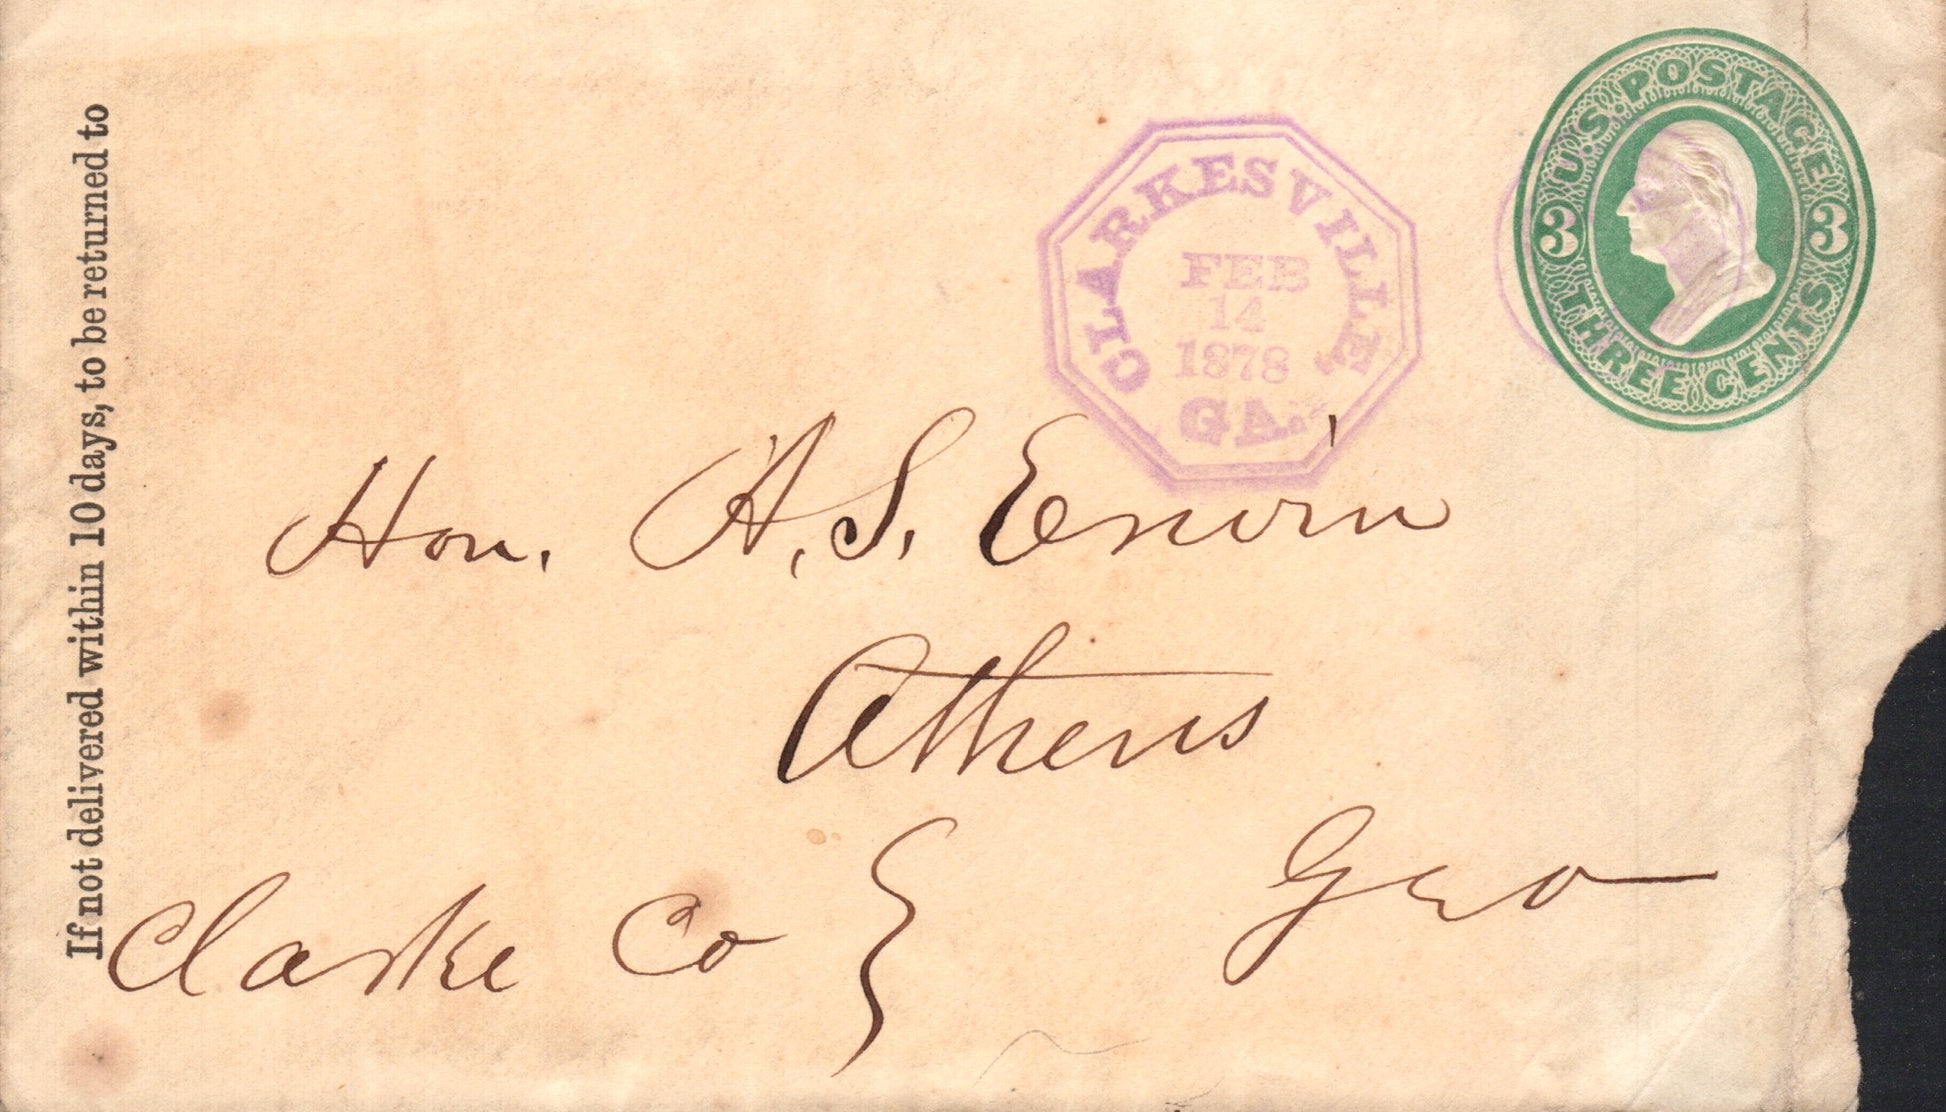 If not delivered within 10 days, to be returned to
CLARKESVILLE
FEB
14
1878
GA.
U.S. POSTAGE
3 3
THREE CENTS
Hon. A. S. Erwin
Athens
Clarke Co Geo